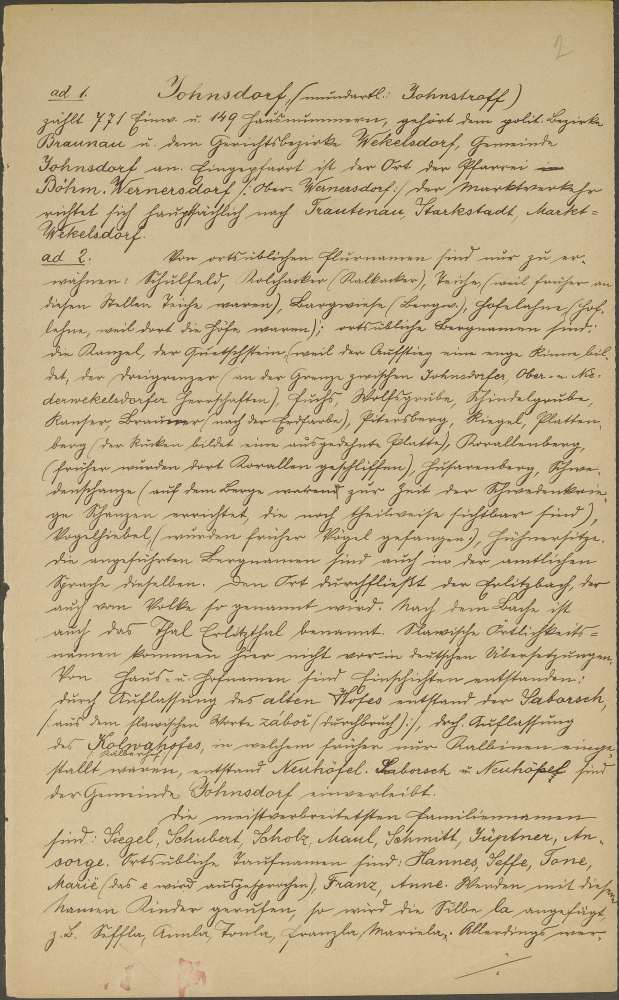 2
ad 1. Johnsdorf, (mundartl.: Johnstroff)
zählt 771 Einw. u. 149 Hausnummern, gehört dem polit. Bezirke
Braunau u. dem Gerichtsbezirke Wekelsdorf, Gemeinde
Johnsdorf an. Eingepfarrt ist der Ort der Pfarrei in
Böhm. Wernersdorf /: Ober-Wernersdorf :/ der Marktverkehr
richtet sich hauptsächlich nach Trautenau, Starkstadt, Markt=
Wekelsdorf.
ad 2. Von ortsüblichen Flurnamen sind nur zu er-
wähnen: Schulfeld, Kolchacker (Kalkacker), Teiche, (weil früher an
diesen Stellen Teiche waren), Bargwiese (Bergw.), Hofelehne, (Hof-
lehne, weil dort die Höfe waren); ortsübliche Bergnamen sind:
die Kanzel, der Quetschstein, (weil der Aufstieg eine enge Rinne bil-
det, der Dreigrenzer (an der Grenze zwischen Johnsdorfer, Ober- u. Nie-
derwekelsdorfer Herrschaften), Fuchs, Wolfsgrube, Schindelgrube,
Kanser, Brauner (nach der Erdfarbe), Pitersberg, Riegel, Platten-
berg (der Rücken bildet eine ausgedehnte Platte), Korallenberg,
(früher wurden dort Korallen geschliffen), Husarenberg, Schwe-
denschanze (auf dem Berge waren zur Zeit der Schwedenkrie-
ge Schanzen errichtet, die noch theilweise sichtbar sind),
Vogelhiebel, (wurden früher Vögel gefangen), Hühnersitze.
Die angeführten Bergnamen sind auch in der amtlichen
Sprache dieselben. Den Ort durchfließt der Erlitzbach, der
auch vom Volke so genannt wird. Nach dem Bache ist
auch das Thal Erlitzthal benannt. Slawische Örtlichkeits=
namen kommen hier nicht vor in deutschen Übersetzungen.
Von Haus- u. Hofnamen sind Einschichten entstanden:
durch Auflassung des alten Hofes entstand der Saborsch,
/: aus dem slawischen Worte zábor (durchbruch) :/, durch Auflassung
des Kolwahofes, in welchem früher nur Kalbinen einge-
Kälberhof
stallt waren, entstand Neuhöfel. Saborsch u. Neuhöfel sind
der Gemeinde Johnsdorf einverleibt.
Die meistverbreitetsten Familiennamen
sind: Siegel, Schubert, Scholz, Maul, Schmitt, Jüptner, An-
sorge. Ortsübliche Taufnamen sind: Hannes, Seffe, Tone,
Marië (das e wird ausgesprochen), Franz, Anne. Werden mit diesen
Namen Kinder gerufen, so wird die Silbe la angefügt,
z. B. Seffla, Annla, Tonla, Franzla, Mariela. Allerdings wer-